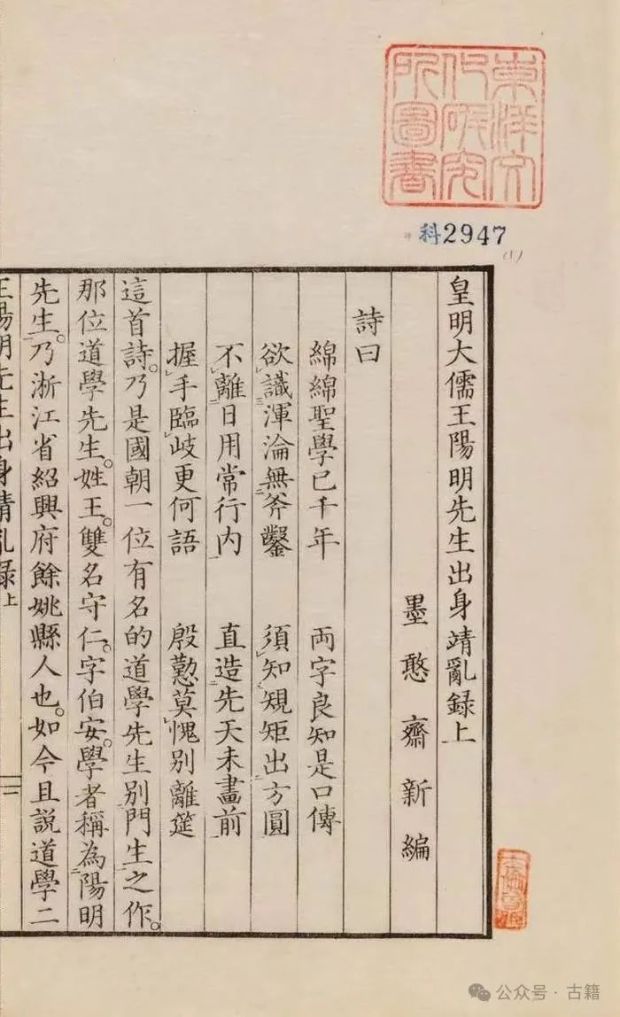 東洋文
化研究
所圖書
科2947
(1)
皇明大儒王陽明先生出身靖亂録上
墨憨齋新編
詩曰
綿綿聖學已千年 両字良知是口傳
欲識渾淪無斧鑿 須知規矩出方圓
不離日用常行內 直造先天未畫前
握手臨岐更何語 殷懃莫愧別離筵
這首詩。乃是國朝一位有名的道學先生別門生之作。
那位道學先生。姓王。雙名守仁。字伯安。學者稱為陽明
先生。乃浙江省紹興府餘姚縣人也。如今且說道學二
王陽明先生出身靖亂録上
公众号·古籍